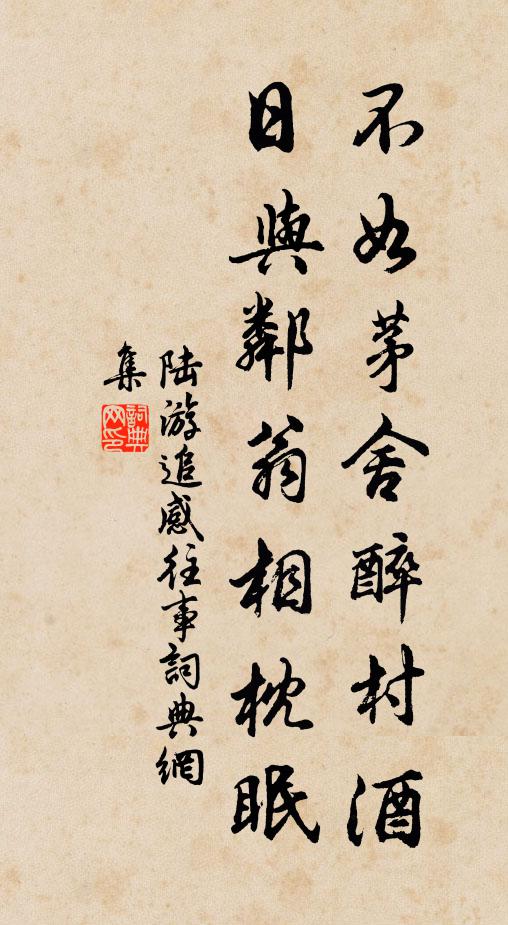 不如茅舍醉村酒
日與鄰翁相枕眠
陸游追感往事詞典網
集
詞典
网印